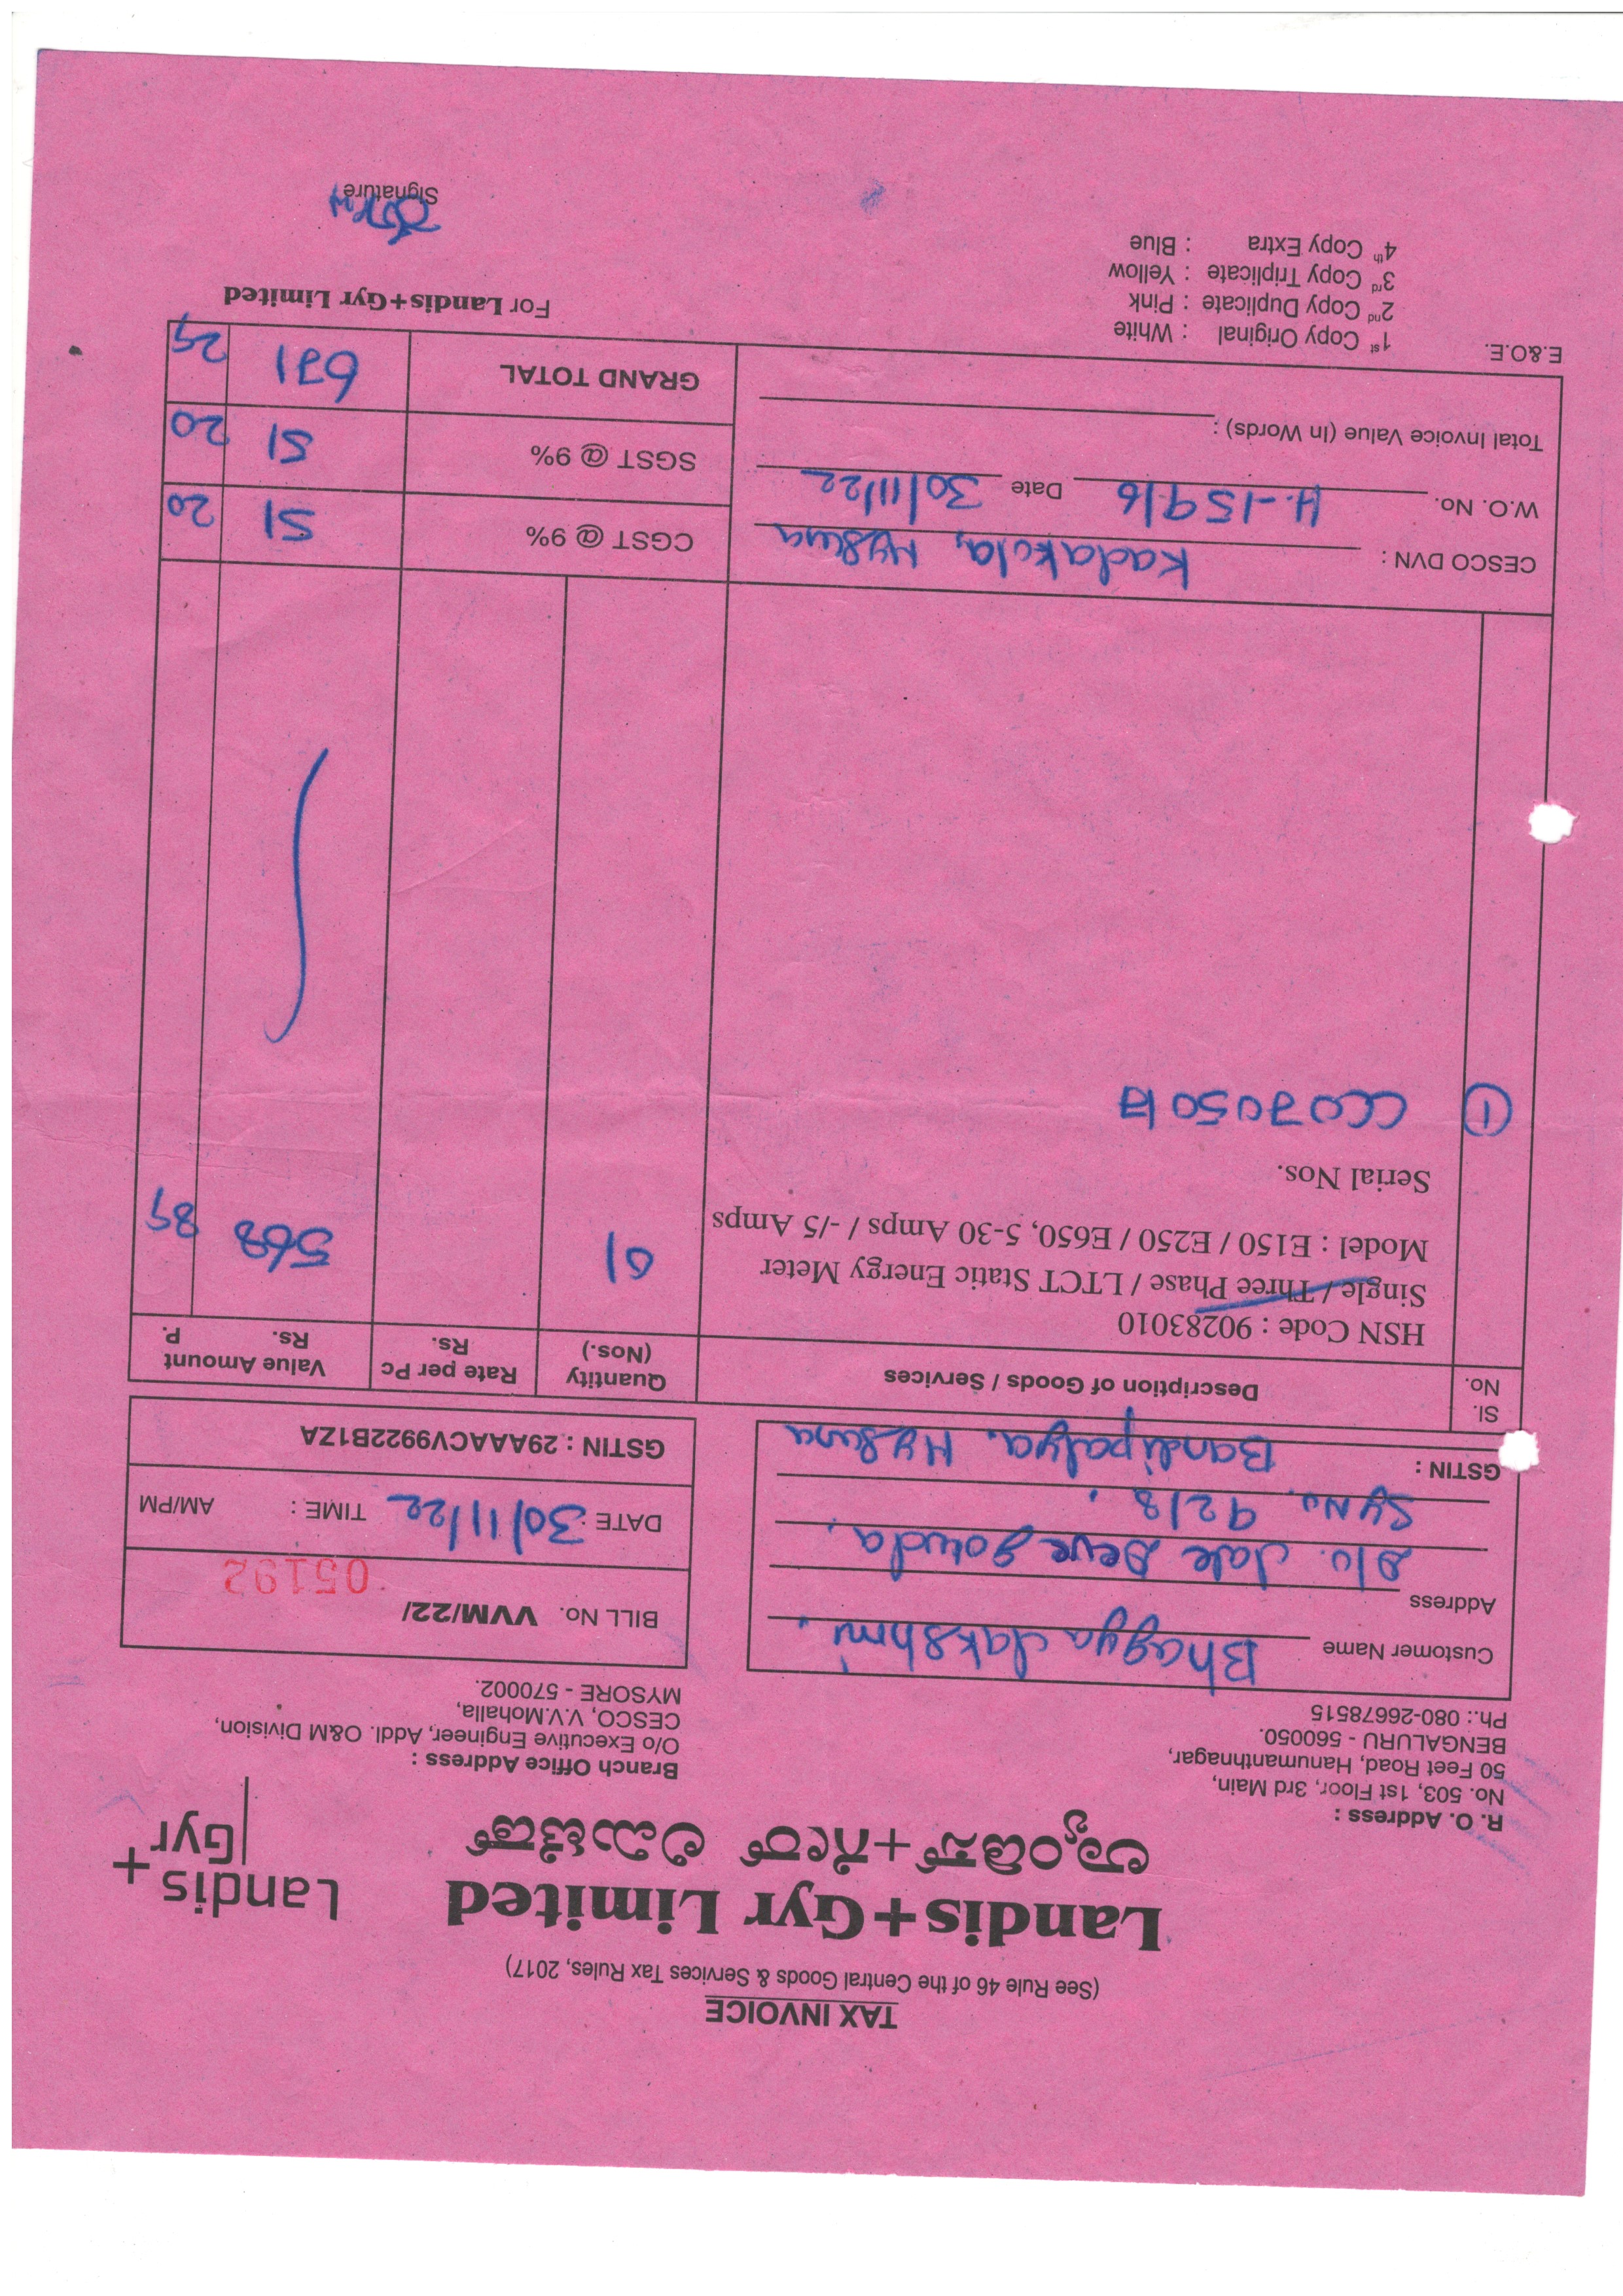 TAX INVOICE
(See Rule 46 of the Central Goods & Services Tax Rules, 2017)
Landis+Gyr Limited
ಲ್ಯಾಂಡಿಸ್+ಗೇರ್ ಲಿಮಿಟೆಡ್
Landis+
Gyr
R. O. Address :
No. 503, 1st Floor, 3rd Main,
50 Feet Road, Hanumanthnagar,
BENGALURU - 560050.
Ph.: 080-26678515
Branch Office Address :
O/o Executive Engineer, Addl. O&M Division,
CESCO, V.V.Mohalla,
MYSORE - 570002.
Customer Name Bhagya Lakshmi.
Address
D/o. Late Deve gowda,
Sy No. 92/8.
GSTIN : Bandipalya, Mysuru
BILL No. VVM/22/ 05192
DATE : 30/11/22 TIME : AM/PM
GSTIN : 29AAACV9922B1ZA
Sl. No. Description of Goods / Services Quantity (Nos.) Rate per Pc Rs. Value Amount Rs. P.
HSN Code : 90283010
Single / Three Phase / LTCT Static Energy Meter
Model : E150 / E250 / E650, 5-30 Amps / -/5 Amps 01 568 85
Serial Nos.
1 CC0705017
CESCO DVN : Kadakola, Mysuru
W.O. No. M-159/6 Date 30/11/22
Total Invoice Value (In Words) :
CGST @ 9% 51 20
SGST @ 9% 51 20
GRAND TOTAL 671 25
E.&O.E.
1st Copy Original : White
2nd Copy Duplicate : Pink
3rd Copy Triplicate : Yellow
4th Copy Extra : Blue
For Landis+Gyr Limited
Signature